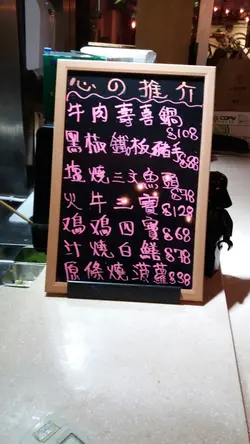 心の推介
牛肉壽喜鍋 $108
黑椒鐵板豬手 $88
塩燒三文魚頭 $78
火牛二寶 $128
鴻鴻四寶 $68
汁燒白鱔 $78
原條燒菠蘿 $38